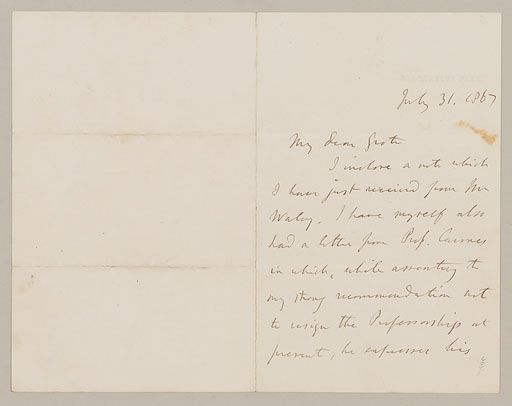 July 31. 1867
My dear Grote
I inclose a note which
I have just received from Mr
Waley. I have myself also
had a letter from Prof. Cairnes
in which, while assenting to
my strong recommendation not
to resign the Professorship at
present, he expresses his